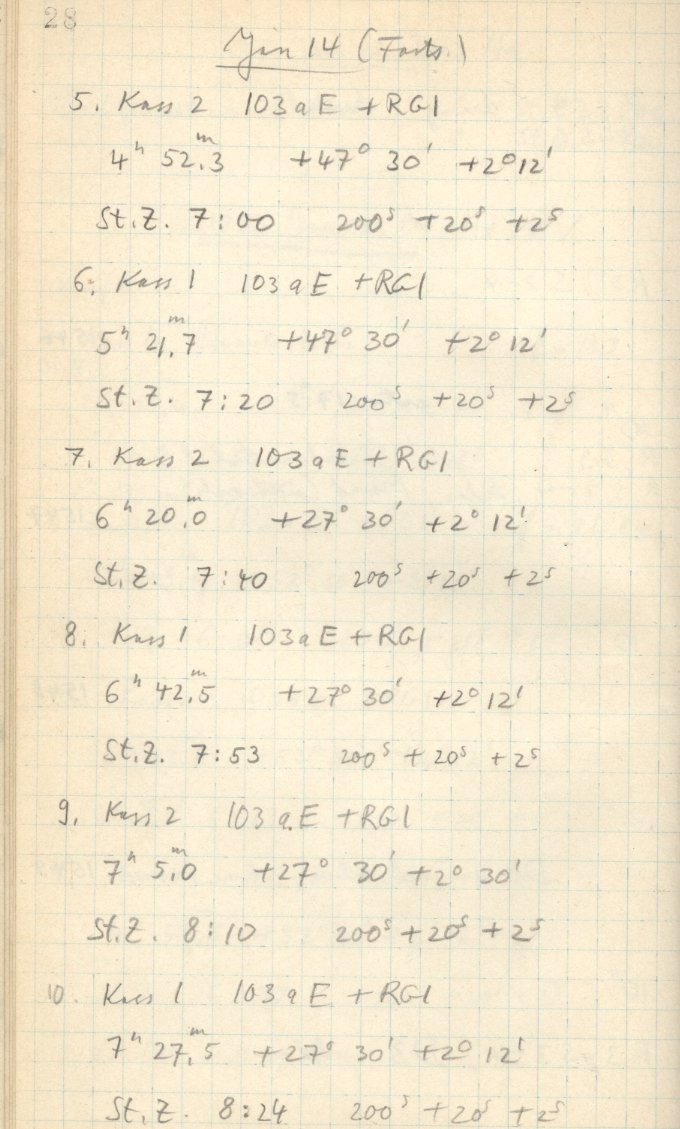 28
Jan 14 (Forts.)
5. Kass 2 103aE + RG1
4ʰ 52,3ᵐ +47° 30' +2° 12'
St.Z. 7:00 200ˢ +20ˢ +2ˢ
6. Kass 1 103aE +RG1
5ʰ 21,7ᵐ +47° 30' +2° 12'
St.Z. 7:20 200ˢ +20ˢ +2ˢ
7. Kass 2 103aE + RG1
6ʰ 20,0ᵐ +27° 30' +2° 12'
St.Z. 7:40 200ˢ +20ˢ +2ˢ
8. Kass 1 103aE + RG1
6ʰ 42,5ᵐ +27° 30' +2° 12'
St.Z. 7:53 200ˢ + 20ˢ + 2ˢ
9. Kass 2 103a.E +RG1
7ʰ 5,0ᵐ +27° 30' +2° 30'
St.Z. 8:10 200ˢ +20ˢ +2ˢ
10. Kass 1 103aE + RG1
7ʰ 27,5ᵐ +27° 30' +2° 12'
St.Z. 8:24 200ˢ +20ˢ +2ˢ